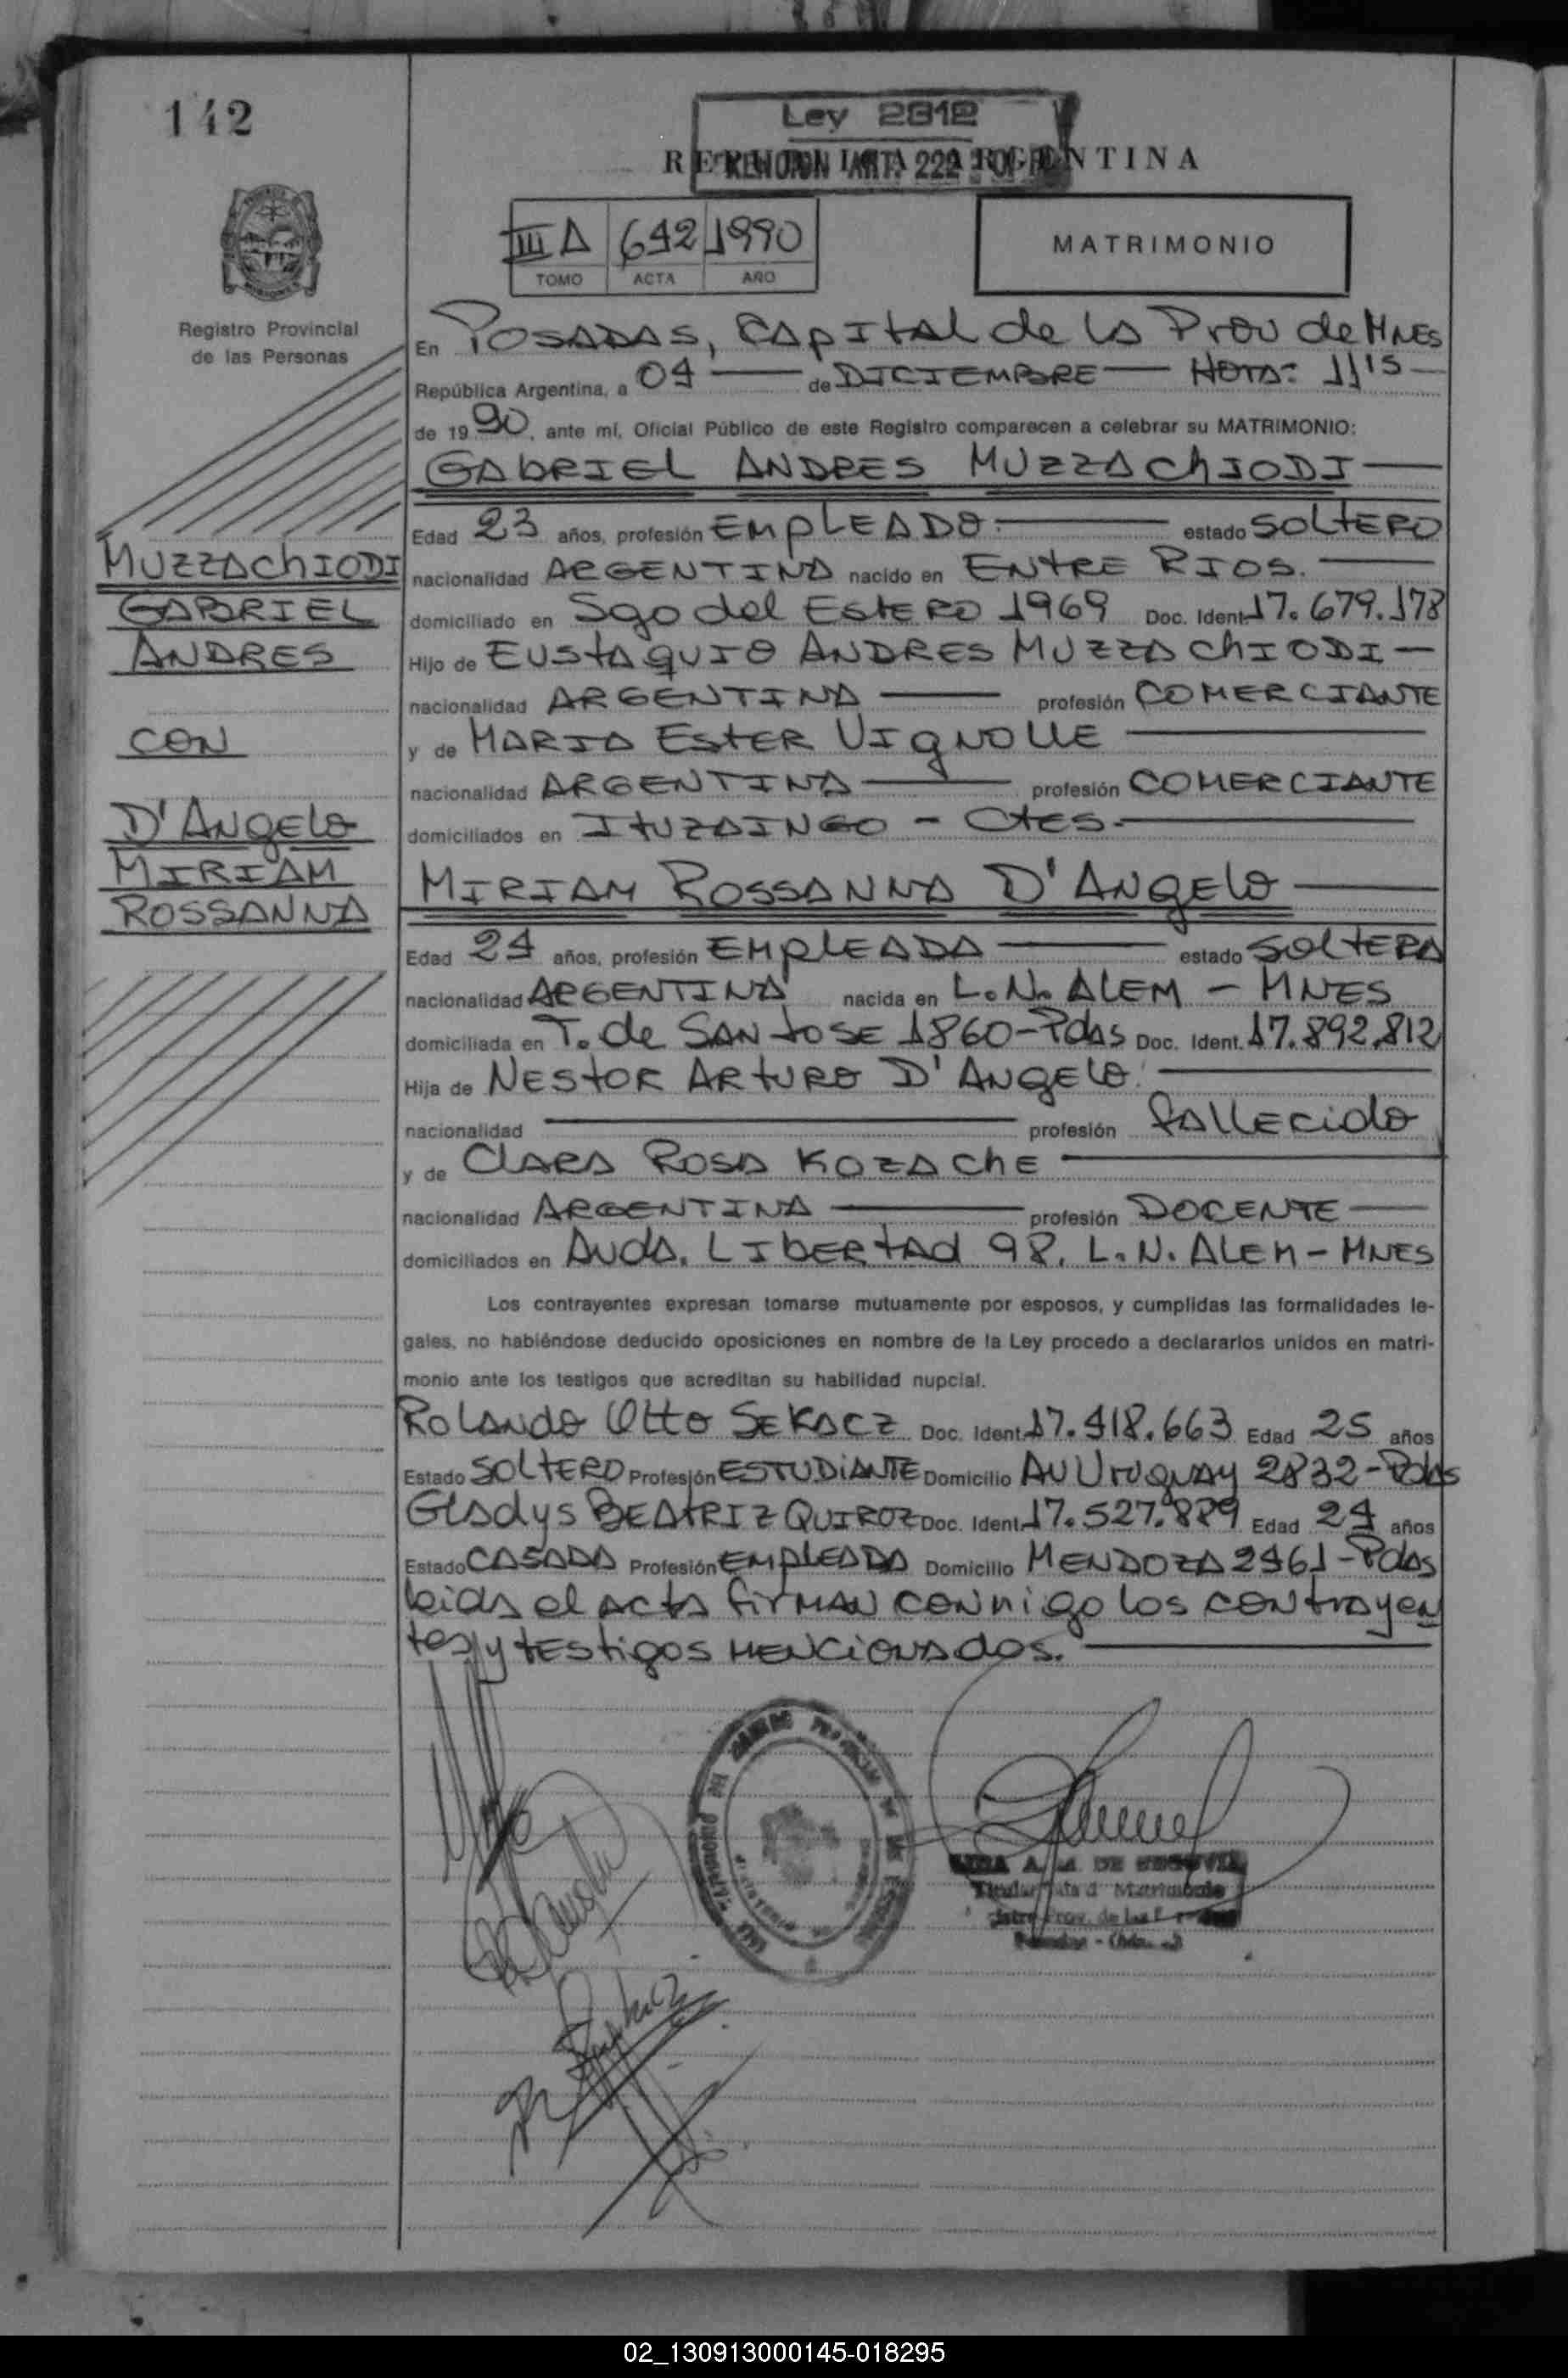 142
Ley 2312
REPUBLICA ARGENTINA
ART. 222
III A 642 1990
TOMO ACTA AÑO
MATRIMONIO
Registro Provincial
de las Personas
En POSADAS, CAPITAL de la Prov de MNES
República Argentina, a 04 de DICIEMBRE HORA: 11 15
de 1990, ante mí, Oficial Público de este Registro comparecen a celebrar su MATRIMONIO:
GABRIEL ANDRES MUZZACHIODI
Edad 23 años, profesión EMPLEADO. estado SOLTERO
nacionalidad ARGENTINA nacido en ENTRE RIOS.
domiciliado en Sgo del ESTERO 1969 Doc. Ident. 17.679.178
Hijo de EUSTAQUIO ANDRES MUZZACHIODI
nacionalidad ARGENTINA profesión COMERCIANTE
y de MARIA ESTER VIGNOLLE
nacionalidad ARGENTINA profesión COMERCIANTE
domiciliados en ITUZAINGO - CTES.
MIRIAM ROSSANNA D'ANGELO
Edad 24 años, profesión EMPLEADA estado SOLTERA
nacionalidad ARGENTINA nacida en L.N. ALEM - MNES
domiciliada en T. de SAN JOSE 1860-Pdas Doc. Ident. 17.892.812
Hija de NESTOR ARTURO D'ANGELO.
nacionalidad profesión FALLECIDO
y de CLARA ROSA KOZACHE
nacionalidad ARGENTINA profesión DOCENTE
domiciliados en AVDA. LIBERTAD 98. L.N. ALEM - MNES
Los contrayentes expresan tomarse mutuamente por esposos, y cumplidas las formalidades le-
gales, no habiéndose deducido oposiciones en nombre de la Ley procedo a declararlos unidos en matri-
monio ante los testigos que acreditan su habilidad nupcial.
ROLANDO OTTO SEKACZ Doc. Ident. 17.418.663 Edad 25 años
Estado SOLTERO Profesión ESTUDIANTE Domicilio AV URUGUAY 2832-Pdas
GLADYS BEATRIZ QUIROZ Doc. Ident. 17.527.889 Edad 24 años
Estado CASADA Profesión EMPLEADA Domicilio MENDOZA 2461-Pdas
leida el acta firman conmigo los contrayen
tes y testigos mencionados.
MUZZACHIODI
GABRIEL
ANDRES
CON
D'ANGELO
MIRIAM
ROSSANNA
A. M. DE SEGOVIA
Titular Matrimonio
Prov. de las
02_130913000145-018295